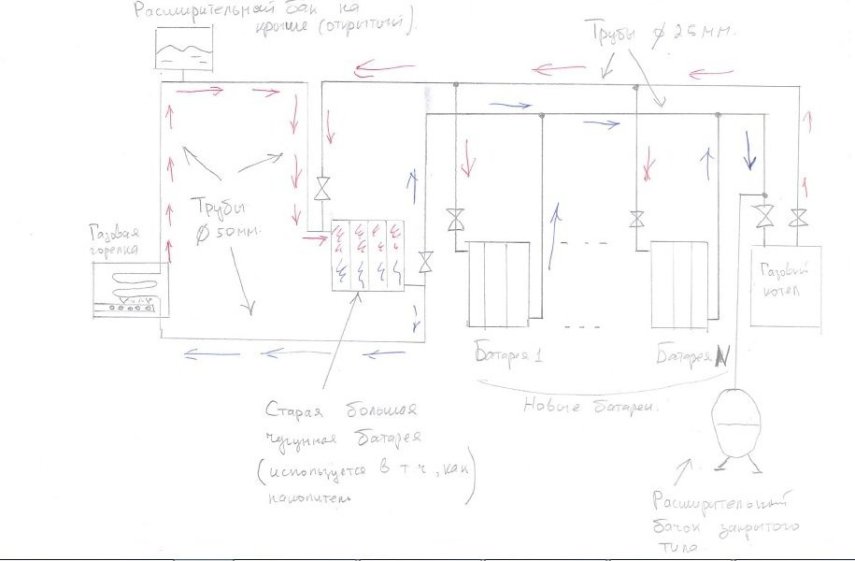 Расширительный бак на
крыше (открытый).
Трубы ϕ 25 мм.
Трубы
ϕ 50 мм.
Газовая
горелка
Газовый
котел
Батарея 1
Батарея N
Новые батареи.
Старая большая
чугунная батарея
(используется в т ч, как
накопитель)
Расширительный
бачок закрытого
типа